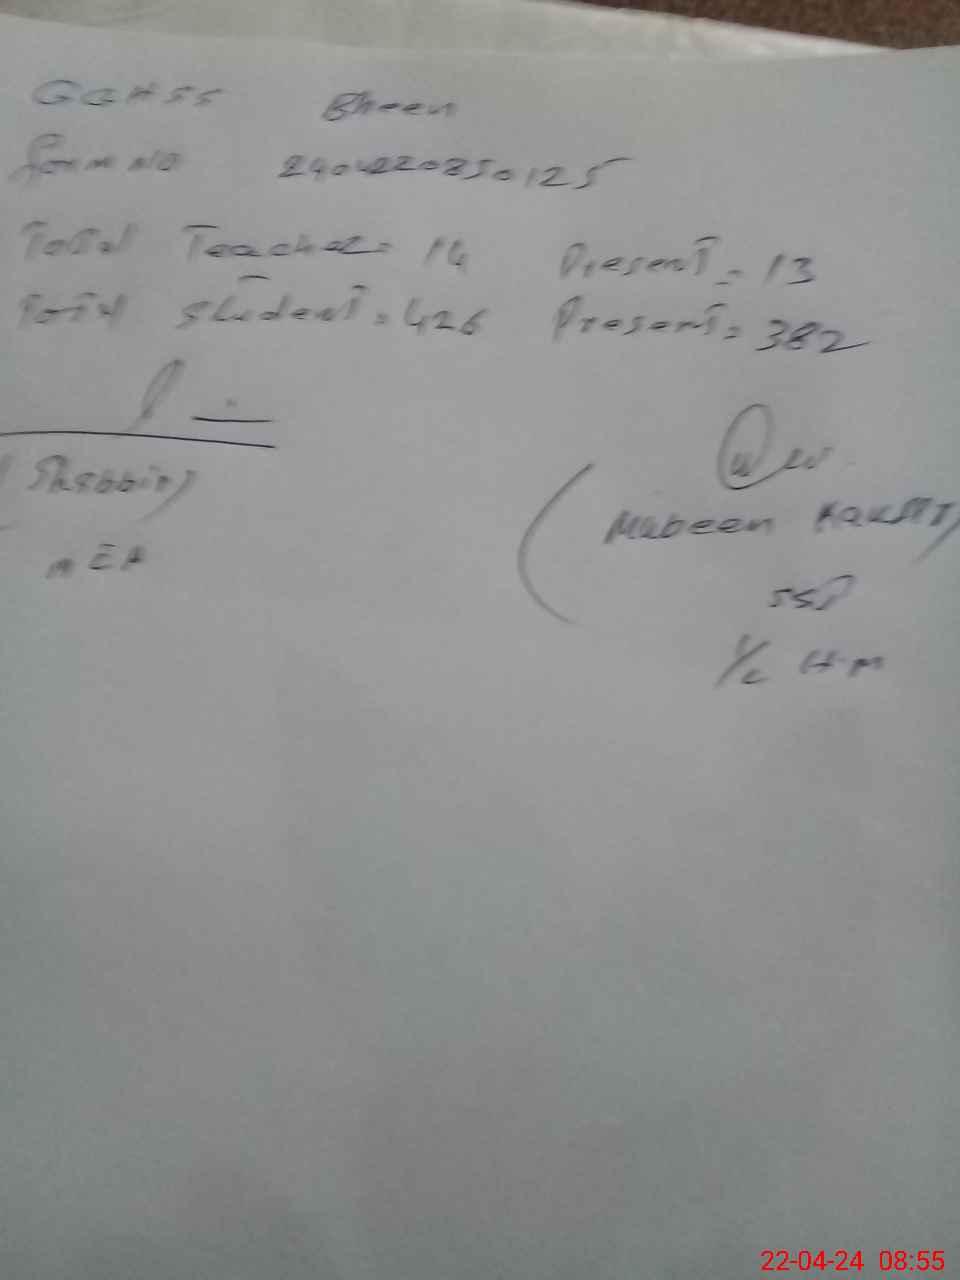 GGHSS Bheen
Form NO 2404220850125
Total Teacher = 14 Present = 13
Total Student = 426 Present = 382
(Shabbir)
MEA
(Mubeen Kausar)
I/c H.M
22-04-24 08:55